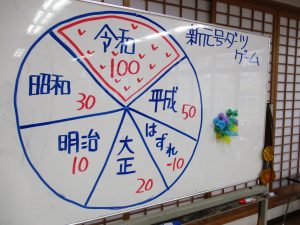 新元号ダーツ
ゲーム
令和
100
平成
50
はずれ
-10
大正
20
明治
10
昭和
30